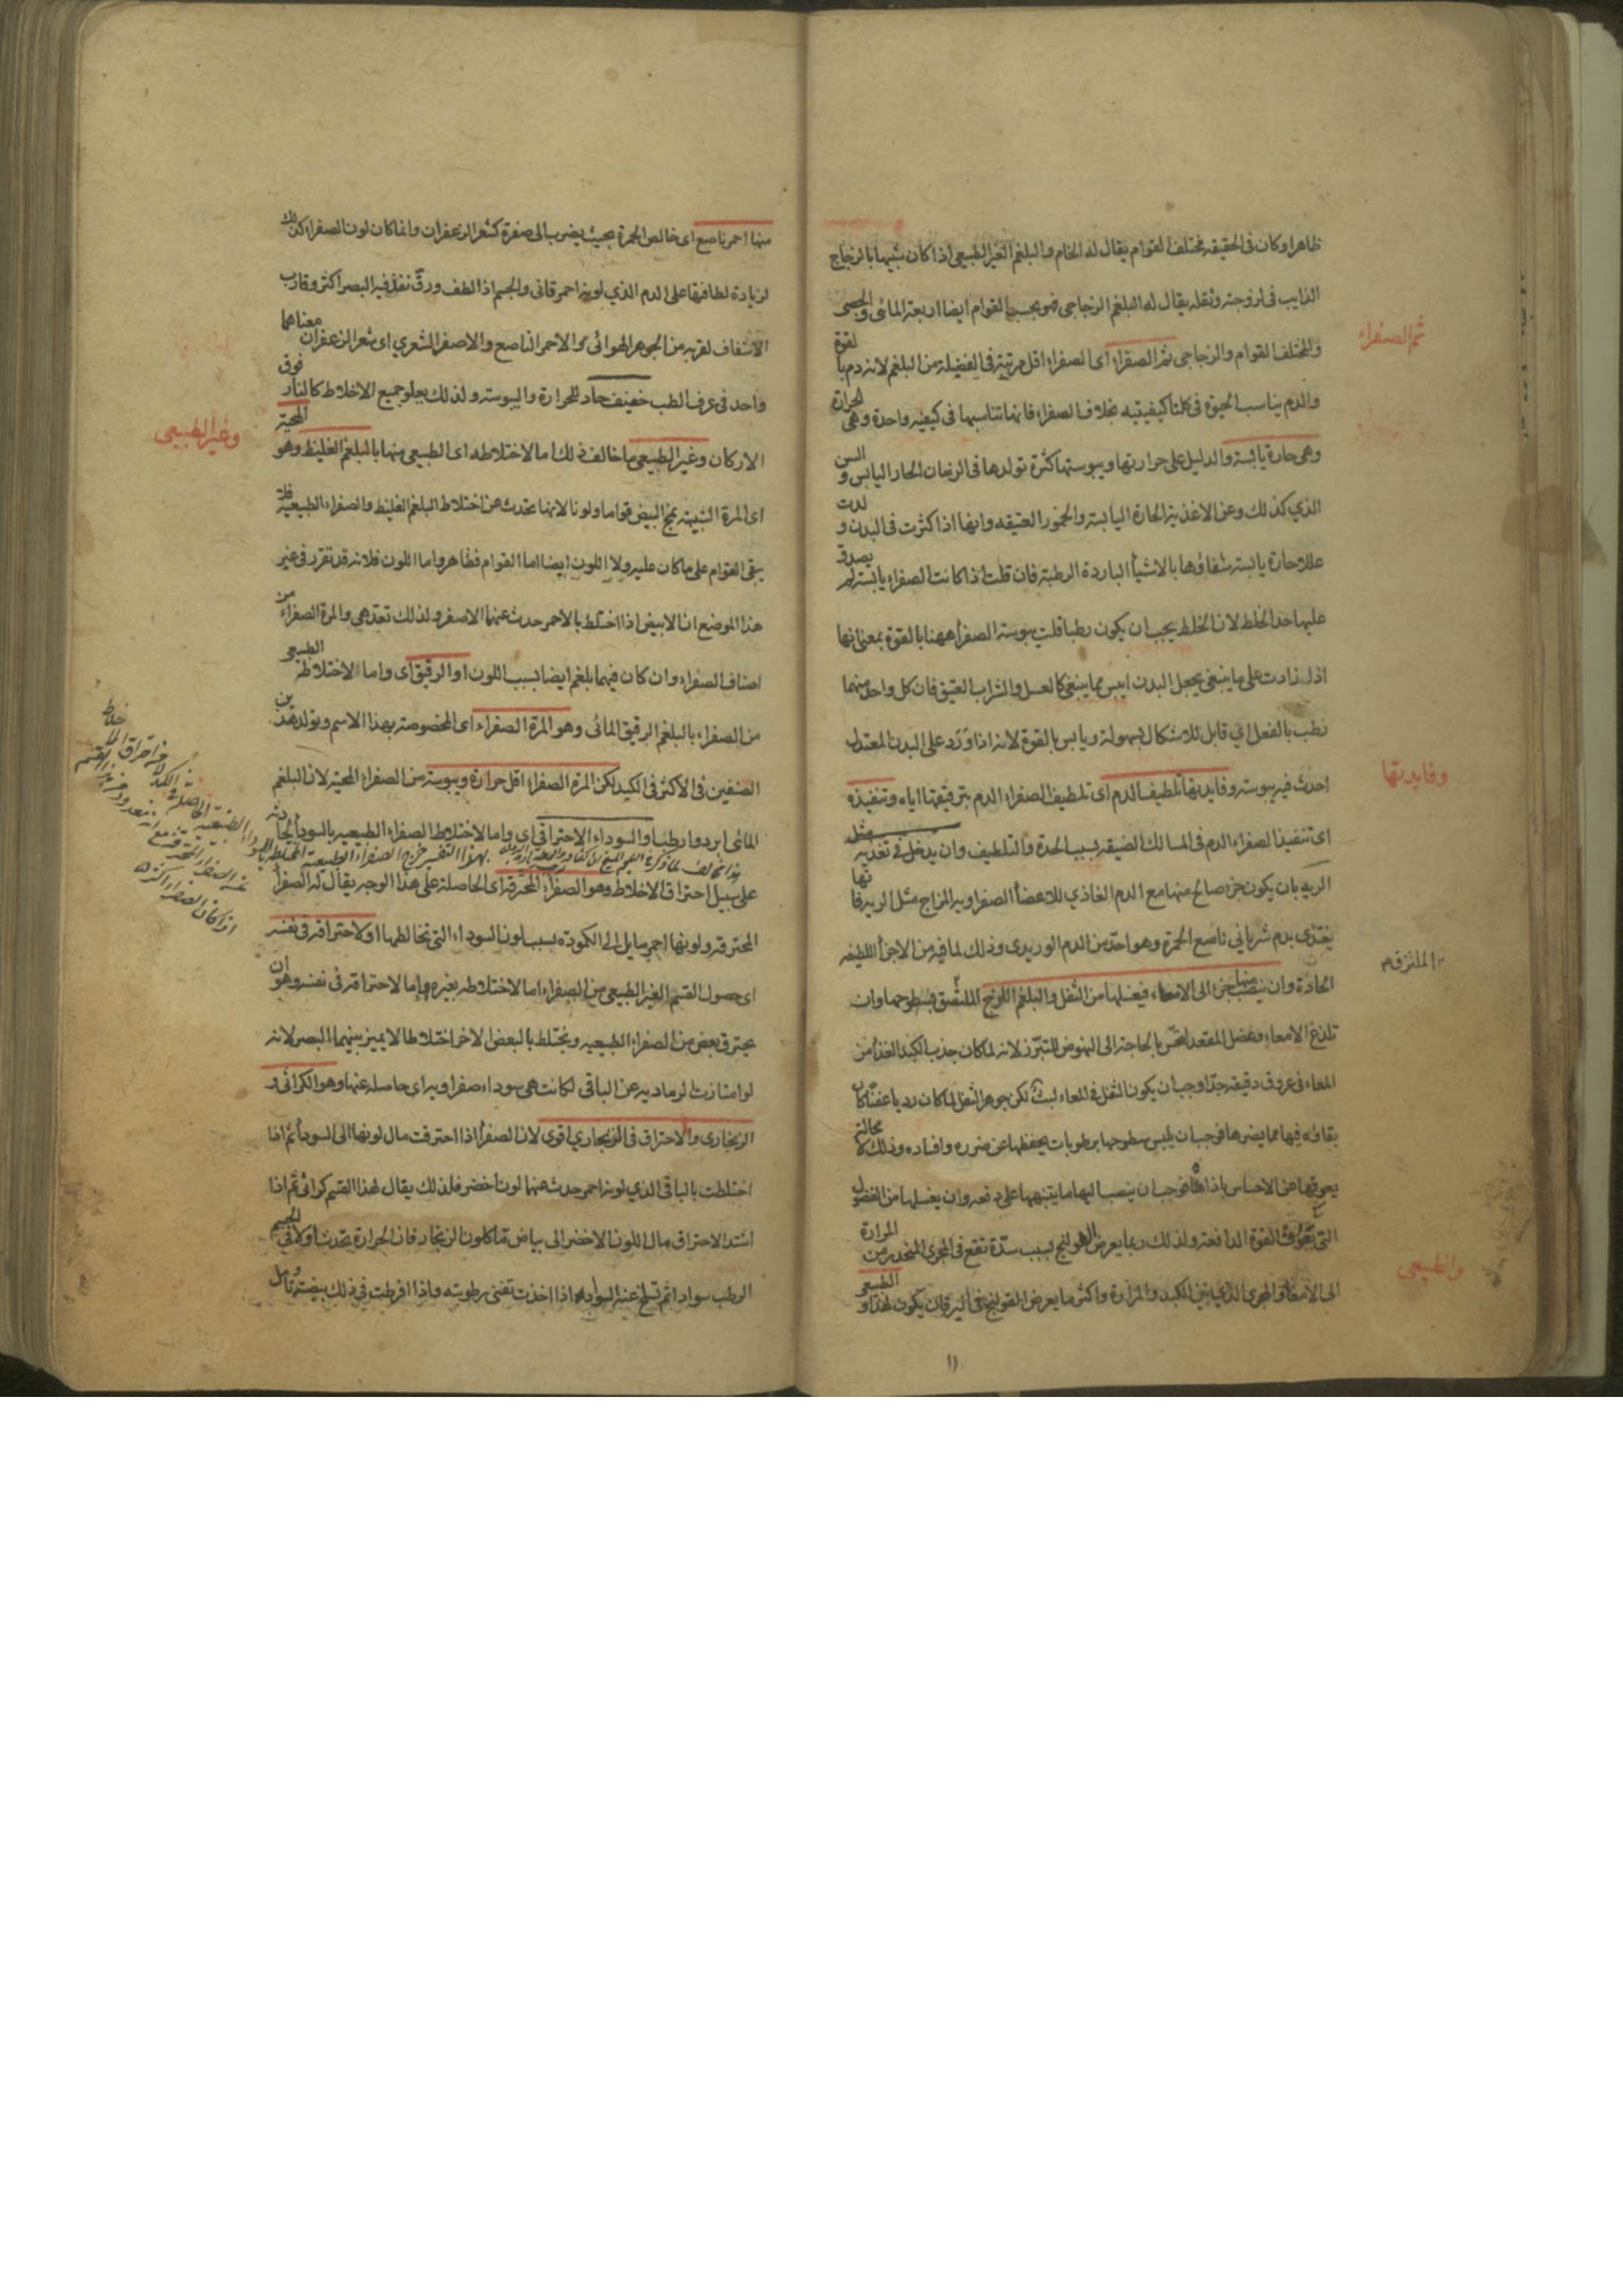 ظاهرا وكان في الحقيقه مختلف القوام يقال له الخام والبلغم الغير الطبيعي اذا كان شبيها بالزجاج
الذايب في لزوجته وثقله يقال له البلغم الزجاجي فهو بحسب القوام ايضا اربعة المائي والجصي
والمختلف القوام والزجاجي ثم الصفراء اي الصفراء اقل مرتبة في الفضيلة من البلغم لانه دم بالقوة
ثم الصفراء
والدم يناسب الحيوة في كلتا كيفيتيه بخلاف الصفراء فانها تناسبها في كيفية واحدة وهي الحرارة
وهي حارة يابسة والدليل على حرارتها ويبوستها كثرة تولدها في الزمان الحار اليابس و السن
الذي كذلك وعن الاغذية الحارة اليابسة والخمور العتيقه وانها اذا كثرت في البدن ولدت
عللا حارة يابسة شفاؤها بالاشيأ الباردة الرطبة فان قلت اذا كانت الصفراء يابسة لم يصدق
عليها حد الخلط لان الخلط يجب ان يكون رطبا قلت يبوسة الصفرأ ههنا بالقوة بمعنى انها
اذا زادت على ما ينبغي يجعل البدن ايبس مما ينبغي كالعسل والشراب العتيق فان كل واحد منهما
رطب بالفعل اي قابل للاشكال بسهولة ويابس بالقوة لانه اذا ورد على البدن المعتدل
احدث فيه يبوسته وفايدتها تلطيف الدم اي تلطيف الصفراء الدم بترقيقها اياه وتنفيذه
وفايدتها
اي تنفيذ الصفراء الدم في المسالك الضيقه بسبب الحدة والتلطيف وان يدخل في تغذية مثل
الريه بان يكون جزء صالح منها مع الدم الغاذي للاعضأ الصفراويه المزاج مثل الريه فانها
يغتذي بدم شرياني ناصع الحمرة وهو احد من الدم الوريدي وذلك لما فيه من الاجزأ اللطيفه
الملتزق
الحادة وان ينصب منها جزء الى الامعاء فيغسلها من الثفل والبلغم اللزج الملتصق بسطوحها وان
تلذع الامعاء وعضل المقعد لتحس بالحاجة الى النهوض للتبرز لانه لما كان جذب الكبد الغذأ من
المعاء في عروق دقيقه جدا وجب ان يكون للثفل في المعاء لبث لكن جوهر الثفل لما كان رديا عفنا كان
بقاؤه فيها مما يضرها فوجب ان يلبس سطوحها برطوبات يحفظها عن ضرره وافساده وذلك لا محالة
يعوقها عن الاحساس باذاها فوجب ان ينصب اليها ما ينبهها على دفعه وان يغسلها من الفضول
التي تعوق القوة الدافعة ولذلك ربما يعرض القولنج بسبب سدة تقع في المجرى المنحدر من المرارة
الى الامعاء والمجرى الذي بين الكبد والمرارة واكثر ما يعرض القولنج عن اليرقان يكون لهذا والطبيعي
والطبيعي
١١
منها احمر ناصع اي خالص الحمرة بحيث يضرب الى صفرة كشعر الزعفران وانما كان لون الصفراء كذلك
لزيادة لطافتها على الدم الذي لونه احمر قاني والجسم اذا لطف ورق نفذ فيه البصر اكثر وقارب
الاشفاف لقربه من الجوهر الهوائي والاحمر الناصع والاصفر الشعري اي شعر الزعفران معناهما
واحد في عرف الطب خفيف حاد للحرارة واليبوسة ولذلك يعلو جميع الاخلاط كالنار فوق
الاركان وغير الطبيعي ما خالف ذلك اما الاختلاطه اي الطبيعي منها بالبلغم الغليظ وهو المحية
وغير الطبيعي
اي المرة الشبيهة بمح البيض قواما ولونا لانها تحدث عن اختلاط البلغم الغليظ والصفراء الطبيعية فلا
يبقى القوام على ما كان عليه ولا اللون ايضا اما القوام فظاهر واما اللون فلانه قد تقرر في غير
هذا الموضع ان الابيض اذا اختلط بالاحمر حدث عنهما الاصفر ولذلك تعد هي والمرة الصفراء من
اصناف الصفراء وان كان فيهما بلغم ايضا بسبب اللون او الرقيق اي واما الاختلاط الطبيعي
من الصفراء بالبلغم الرقيق المائي وهو المرة الصفراء اي المخصوصة بهذا الاسم وتولد هذين
الصنفين في الاكثر في الكبد لكن المرة الصفراء اقل حرارة ويبوسة من الصفراء المحية لان البلغم
المائي ابرد وارطب او السوداء الاحتراقي اي واما الاختلاط الصفراء الطبيعيه بالسودأ الحادثة
على سبيل احتراق الاخلاط وهو الصفراء المحترقة اي الحاصلة على هذا الوجه يقال له الصفرأ
المحترقه ولونها احمر مايل الى الكمودة بسبب لون السوداء التي تخالطها او لاحتراقه في نفسه
اي حصول القسم الغير الطبيعي من الصفراء اما الاختلاطه بغيره واما لاحتراقه في نفسه وهو ان
يحترق بعض من الصفراء الطبيعيه ويختلط بالبعض الاخر اختلاطا لا يميز بينهما البصر لانه
لو امتازت الرماديه عن الباقي لكانت هي سوداء صفراويه اي حاصله عنها وهو الكراثي و
الزنجاري والاحتراق في الزنجاري اقوى لان الصفرأ اذا احترقت مال لونها الى السودأ ثم اذا
اختلطت بالباقي الذي لونه احمر حدث عنهما لون أخضر فلذلك يقال لهذا القسم كراثي ثم اذا
اشتد الاحتراق مال اللون الاخضر الى بياض ما كلون الزنجار فان الحرارة تحدث اولا في الجسم
الرطب سوادا ثم تسلخ عنه السواد اذا اخذت تفني رطوبته واذا افرطت في ذلك بيضته تامل